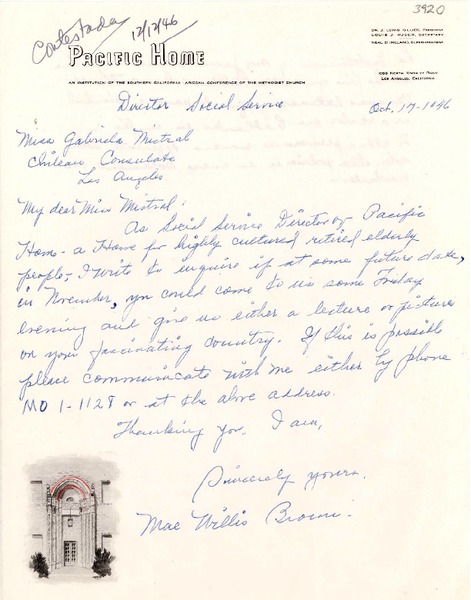 3920
Contestada 12/12/46
PACIFIC HOME
DR. J. LEWIS GILLIES, PRESIDENT
LOUIS J. HUSER, SECRETARY
NEAL D. IRELAND, SUPERINTENDENT
AN INSTITUTION OF THE SOUTHERN CALIFORNIA - ARIZONA CONFERENCE OF THE METHODIST CHURCH
1055 NORTH KINGSLEY DRIVE
LOS ANGELES, CALIFORNIA
Director Social Service
Oct. 17-1946
Miss Gabriela Mistral
Chilean Consulate
Los Angeles
My dear Miss Mistral:
As Social Service Director of Pacific
Home - a Home for highly cultured retired elderly
people, - I write to enquire if at some future date,
in November, you could come to us some Friday
evening and give us either a lecture or pictures
on your fascinating country. If this is possible
please communicate with me either by phone
MO 1-1128 or at the above address.
Thanking you. I am,
Sincerely yours.
Mae Willis Brown.